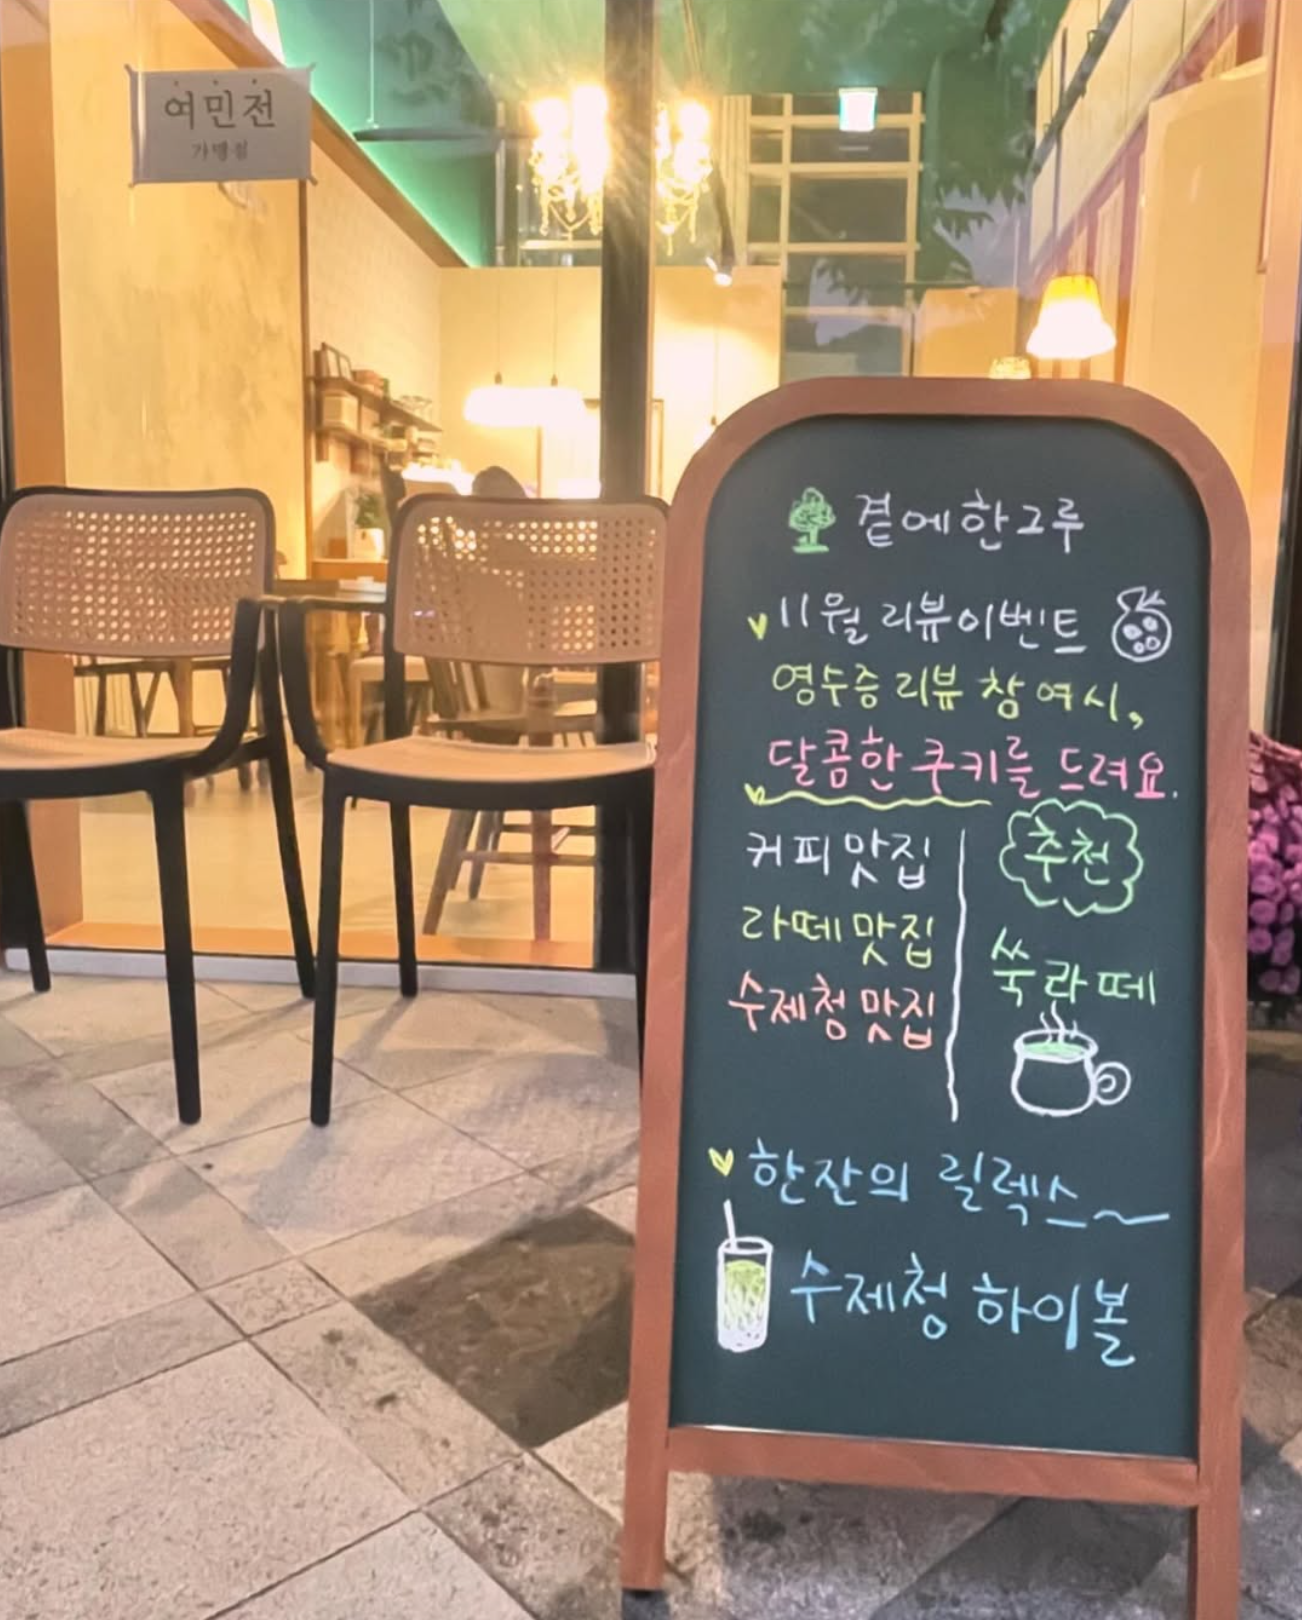 여민전
가맹점
곁에한그루
11월 리뷰이벤트
영수증 리뷰 참여시,
달콤한 쿠키를 드려요.
커피 맛집
라떼 맛집
수제청 맛집
추천
쑥라떼
한잔의 릴렉스~
수제청 하이볼